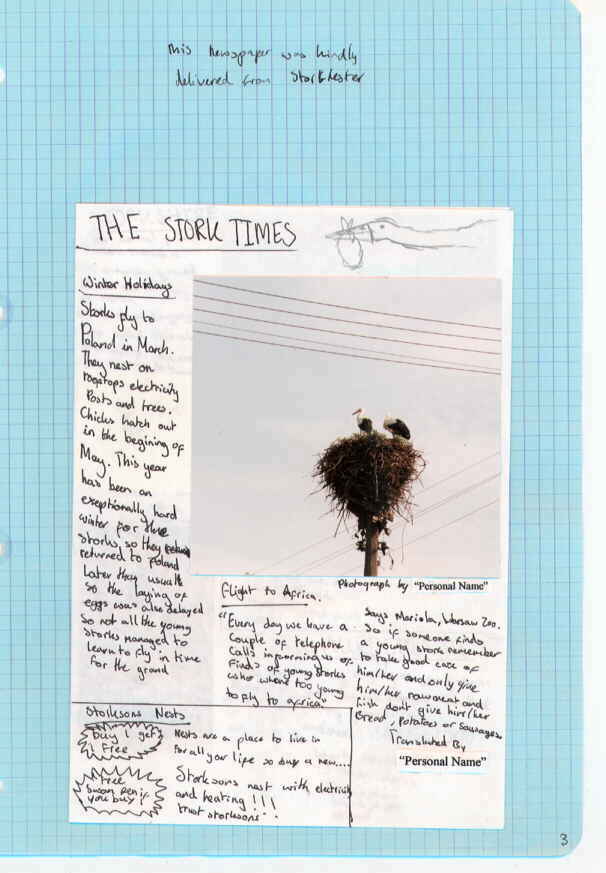 This newspaper was kindly
delivered from Storkhester
THE STORK TIMES
Winter Holidays
Storks fly to
Poland in March.
They nest on
rooftops electricity
Posts and trees.
Chicks hatch out
in the begining of
May. This year
has been an
exeptionally hard
winter for the
storks, so they
returned to Poland
later they usuall
so the laying of
eggs was also delayed
so not all the young
storks managed to
learn to fly in time
for the grand
Photograph by "Personal Name"
Flight to Africa.
"Every day we have a
couple of telephone
calls informing us of
finds of young storks
who where too young
to fly to africa"
says Mariola, Warsaw Zoo.
So if someone finds
a young stork remember
to take good care of
him/her and only give
him/her raw meat and
fish don't give him/her
Bread, potatoes or sausages
Translated By
"Personal Name"
Storksons Nests
Buy 1 get
1 Free
Nests are a place to live in
for all your life so buy a new....
Free
pen if
you buy!
Storksons nest with electricity
and heating!!!
trust storksons
3